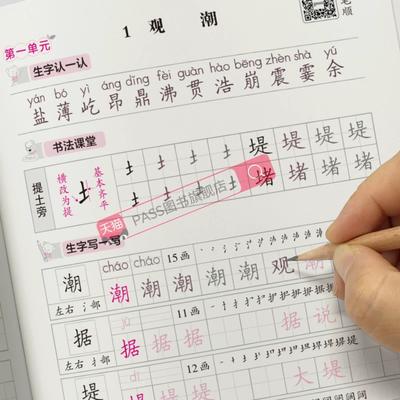 笔
顺
第一单元
1 观 潮
生字认一认
yán bó yì áng dǐng fèi guàn hào bēng zhèn shà yú
盐 薄 屹 昂 鼎 沸 贯 浩 崩 震 霎 余
书法课堂
提土旁
横改为提
基本齐平
堤 堤 堤 堤
堵 堵 堵 堵
天猫 PASS图书旗舰店
生字写一写
潮 cháo cháo 15画
潮 潮 潮 潮 潮 观 潮
左右 氵部
据 jù 11画
据 据 据 据 说
左右 扌部
堤 dī 12画
堤 堤 堤 大 堤